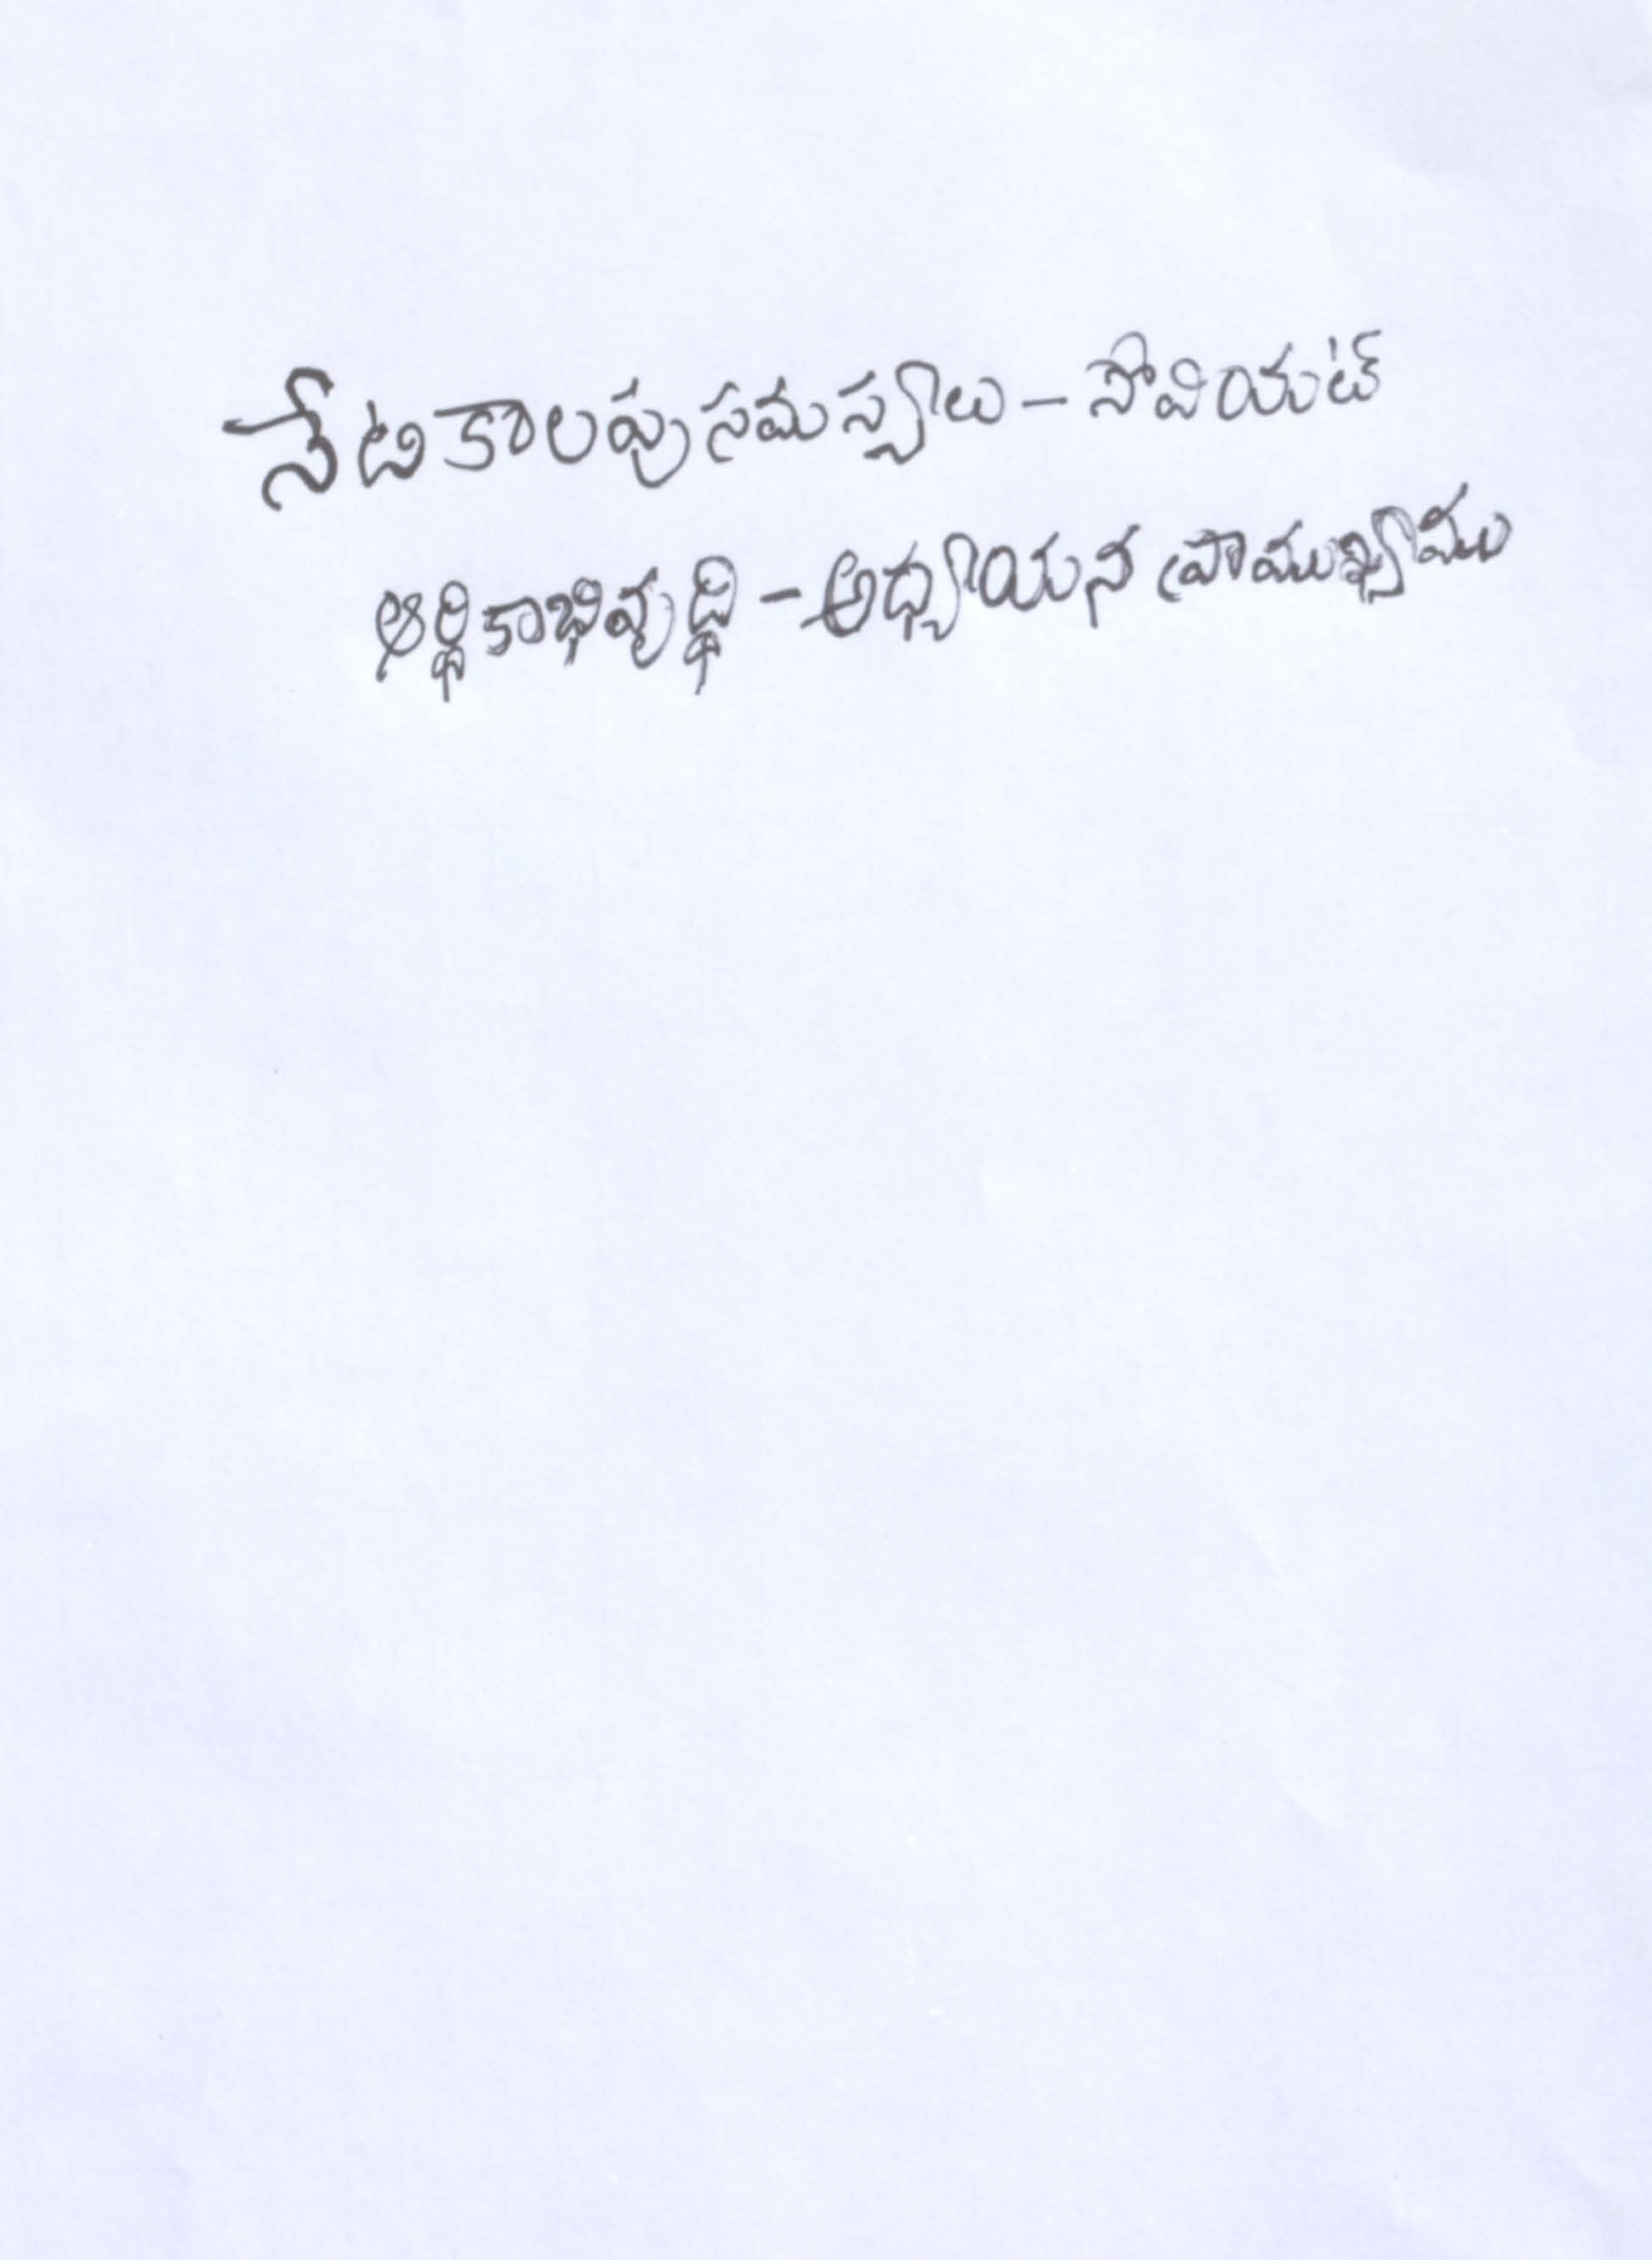 నేటి కాలపు సమస్యలు - సోవియట్
ఆర్థికాభివృద్ధి - అధ్యాయన ప్రాముఖ్యాము